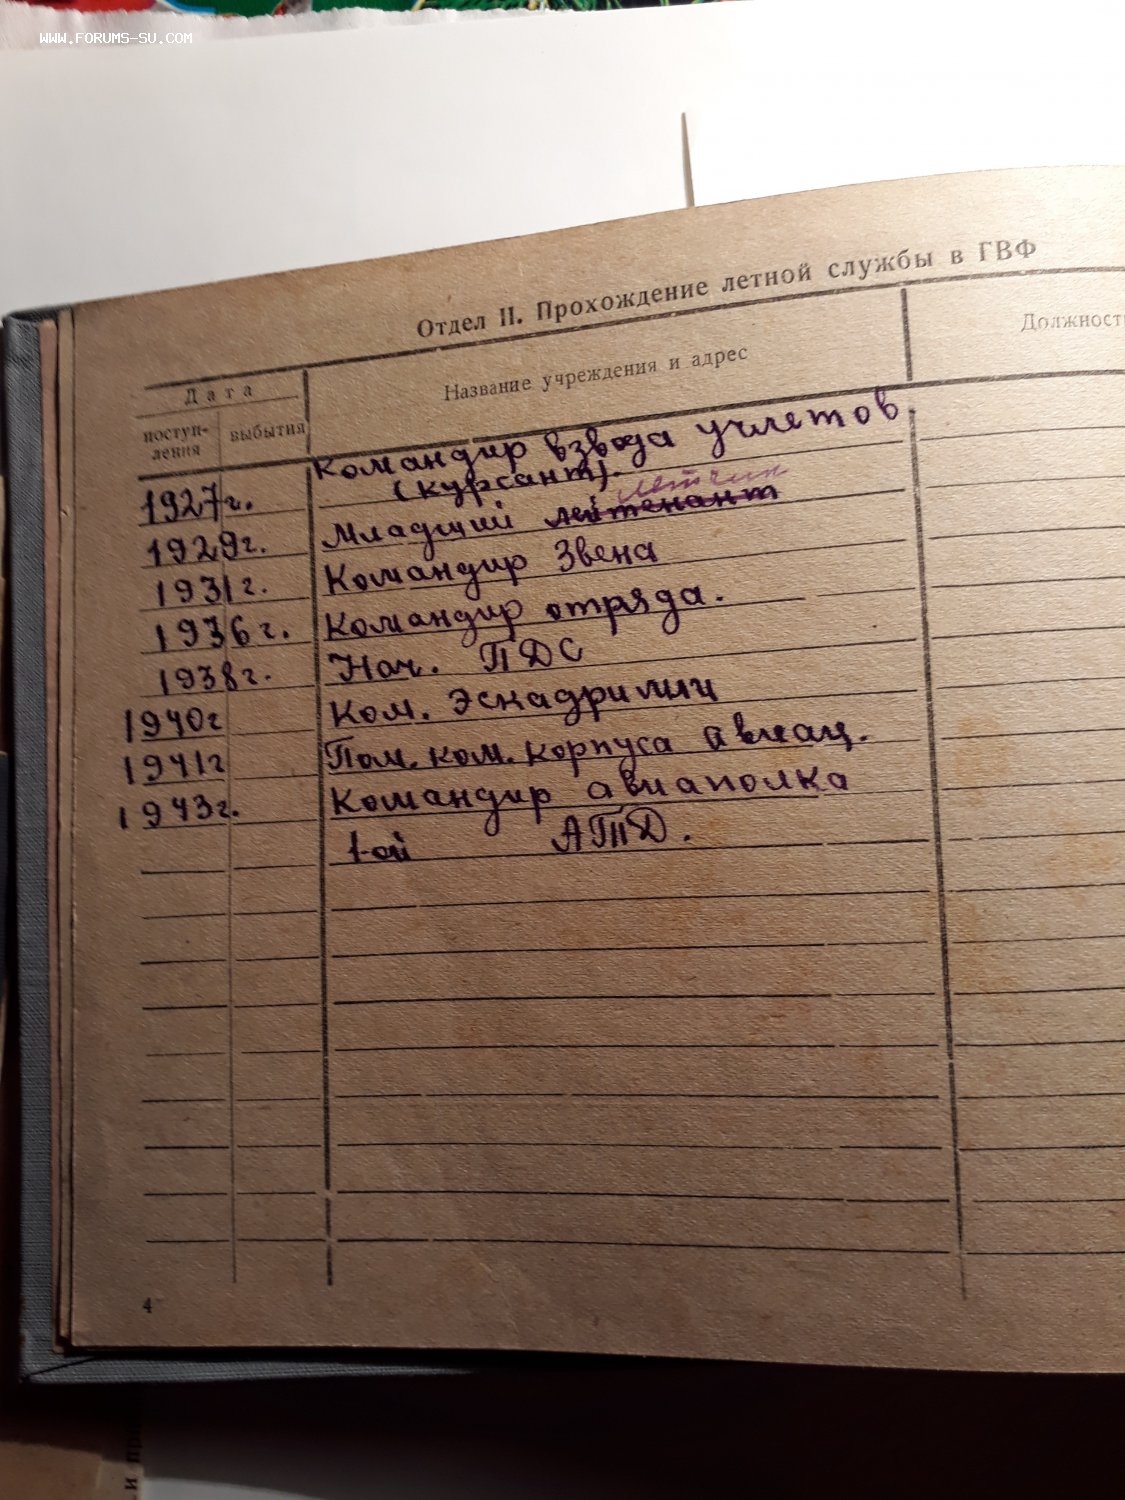 WWW.FORUMS-SU.COM
Отдел II. Прохождение летной службы в ГВФ
Дата
Название учреждения и адрес
Должност
поступ-
ления
выбытия
1927г. Командир взвода учлетов
(курсант).
летчик
1929г. Младший лейтенант
1931г. Командир Звена
1936г. Командир отряда.
1938г. Нач. ПДС
1940г Ком. Эскадрильи
1941г Пом. ком. корпуса авиац.
1943г. Командир авиаполка
1-ой АТД.
4
и при